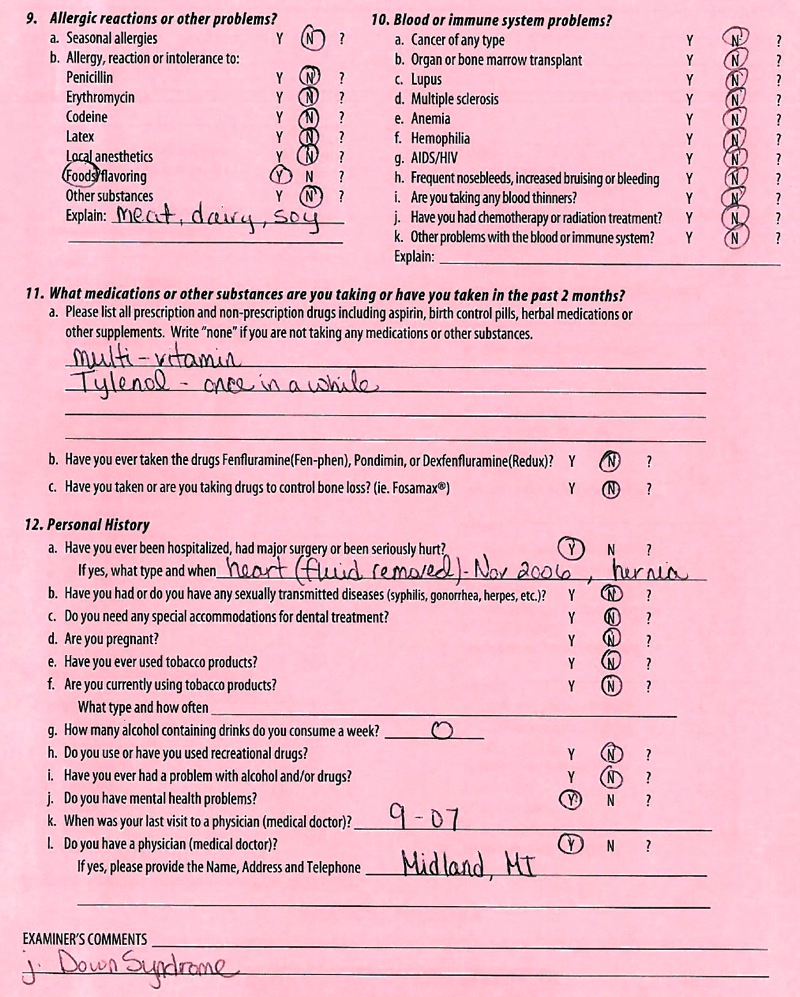 9. Allergic reactions or other problems?
a. Seasonal allergies Y N ?
b. Allergy, reaction or intolerance to:
Penicillin Y N ?
Erythromycin Y N ?
Codeine Y N ?
Latex Y N ?
Local anesthetics Y N ?
Foods/flavoring Y N ?
Other substances Y N ?
Explain: meat, dairy, soy
10. Blood or immune system problems?
a. Cancer of any type Y N ?
b. Organ or bone marrow transplant Y N ?
c. Lupus Y N ?
d. Multiple sclerosis Y N ?
e. Anemia Y N ?
f. Hemophilia Y N ?
g. AIDS/HIV Y N ?
h. Frequent nosebleeds, increased bruising or bleeding Y N ?
i. Are you taking any blood thinners? Y N ?
j. Have you had chemotherapy or radiation treatment? Y N ?
k. Other problems with the blood or immune system? Y N ?
Explain:
11. What medications or other substances are you taking or have you taken in the past 2 months?
a. Please list all prescription and non-prescription drugs including aspirin, birth control pills, herbal medications or
other supplements. Write "none" if you are not taking any medications or other substances.
multi-vitamin
Tylenol - once in a while
b. Have you ever taken the drugs Fenfluramine(Fen-phen), Pondimin, or Dexfenfluramine(Redux)? Y N ?
c. Have you taken or are you taking drugs to control bone loss? (ie. Fosamax®) Y N ?
12. Personal History
a. Have you ever been hospitalized, had major surgery or been seriously hurt? Y N ?
If yes, what type and when heart (fluid removed)-Nov 2006, hernia
b. Have you had or do you have any sexually transmitted diseases (syphilis, gonorrhea, herpes, etc.)? Y N ?
c. Do you need any special accommodations for dental treatment? Y N ?
d. Are you pregnant? Y N ?
e. Have you ever used tobacco products? Y N ?
f. Are you currently using tobacco products? Y N ?
What type and how often
g. How many alcohol containing drinks do you consume a week? 0
h. Do you use or have you used recreational drugs? Y N ?
i. Have you ever had a problem with alcohol and/or drugs? Y N ?
j. Do you have mental health problems? Y N ?
k. When was your last visit to a physician (medical doctor)? 9-07
l. Do you have a physician (medical doctor)? Y N ?
If yes, please provide the Name, Address and Telephone Midland, MI
EXAMINER'S COMMENTS
j. Down Syndrome